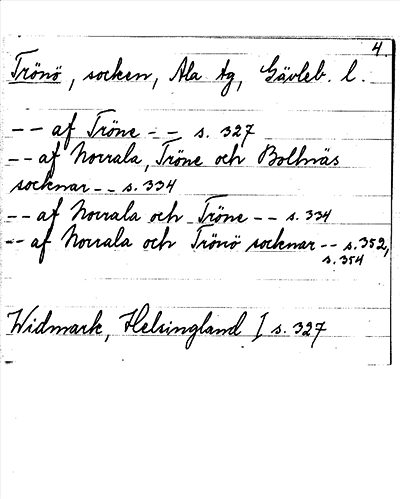 4.
Trönö, socken, Ala tg, Gävleb. l.
-- af Tröne -- s. 327
-- af Norrala, Tröne och Bollnäs
socknar -- s. 334
-- af Norrala och Tröne -- s. 334
-- af Norrala och Trönö socknar -- s. 352,
s. 354
Widmark, Helsingland I s. 327